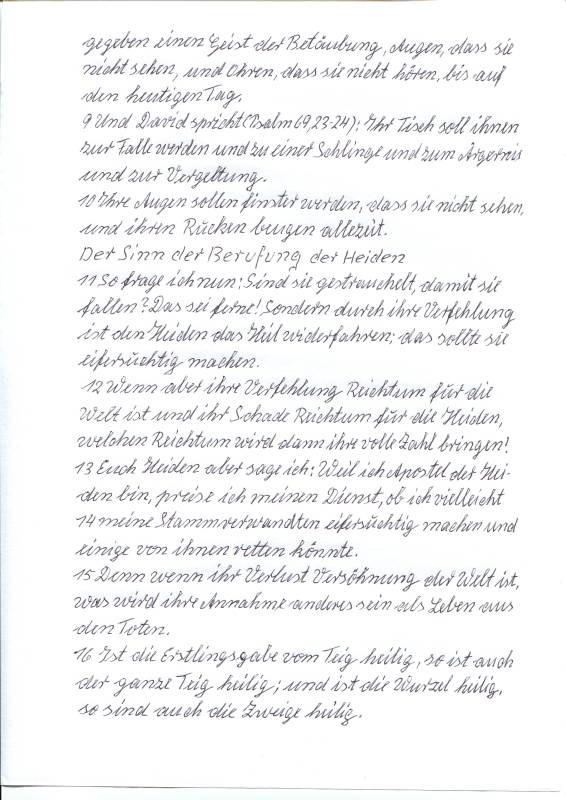 gegeben einen Geist der Betäubung, Augen, dass sie
nicht sehen, und Ohren, dass sie nicht hören, bis auf
den heutigen Tag.
9 Und David spricht (Psalm 69,23-24): Ihr Tisch soll ihnen
zur Falle werden und zu einer Schlinge und zum Ärgernis
und zur Vergeltung.
10 Ihre Augen sollen finster werden, dass sie nicht sehen,
und ihren Rücken beugen allezeit.
Der Sinn der Berufung der Heiden
11 So frage ich nun: Sind sie gestrauchelt, damit sie
fallen? Das sei ferne! Sondern durch ihre Verfehlung
ist den Heiden das Heil widerfahren; das sollte sie
eifersüchtig machen.
12 Wenn aber ihre Verfehlung Reichtum für die
Welt ist und ihr Schade Reichtum für die Heiden,
welchen Reichtum wird dann ihre volle Zahl bringen!
13 Euch Heiden aber sage ich: Weil ich Apostel der Hei-
den bin, preise ich meinen Dienst, ob ich vielleicht
14 meine Stammverwandten eifersüchtig machen und
einige von ihnen retten könnte.
15 Denn wenn ihr Verlust Versöhnung der Welt ist,
was wird ihre Annahme anderes sein als Leben aus
den Toten.
16 Ist die Erstlingsgabe vom Teig heilig, so ist auch
der ganze Teig heilig; und ist die Wurzel heilig,
so sind auch die Zweige heilig.